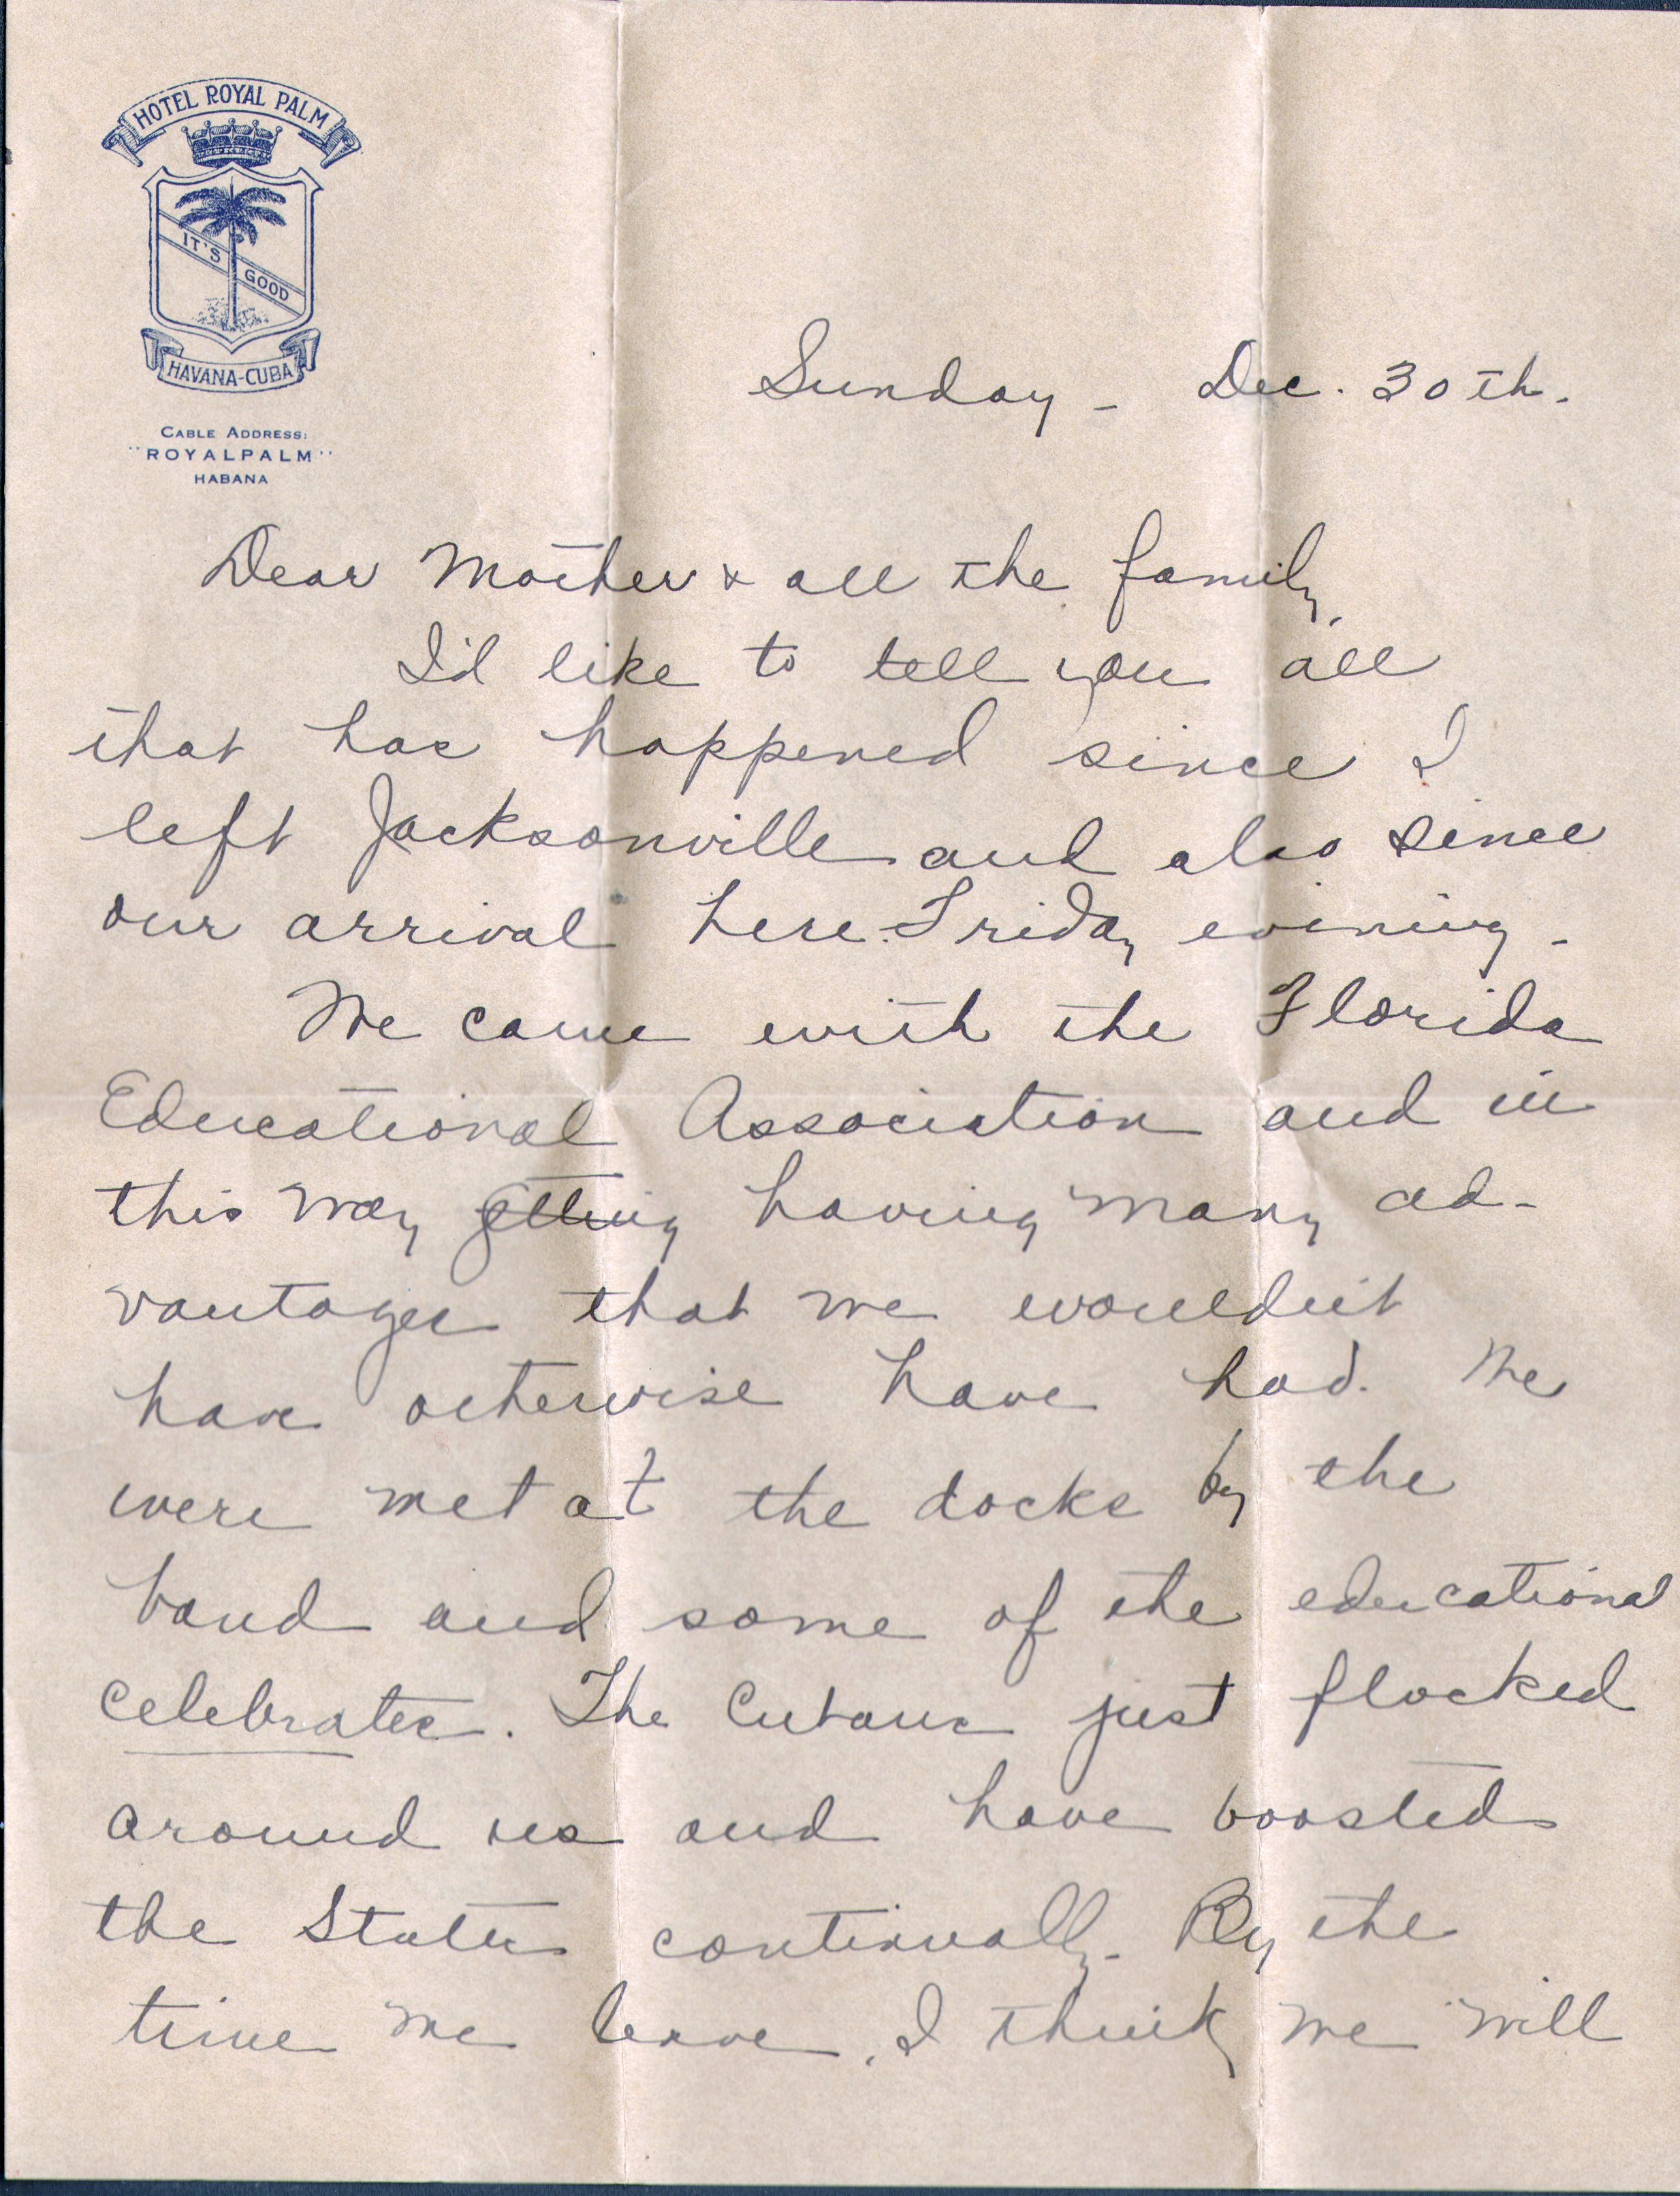 HOTEL ROYAL PALM
IT'S GOOD
HAVANA-CUBA
CABLE ADDRESS:
"ROYALPALM"
HABANA
Sunday - Dec. 30th.
Dear Mother & all the family,
I'd like to tell you all
that has happened since I
left Jacksonville and also since
our arrival here Friday evening -
We came with the Florida
Educational Association and in
this way getting having many ad-
vantages that we wouldn't
have otherwise have had. We
were met at the docks by the
band and some of the educational
celebrates. The Cubans just flocked
around us and have boosted
the States continually. By the
time we leave, I think we will